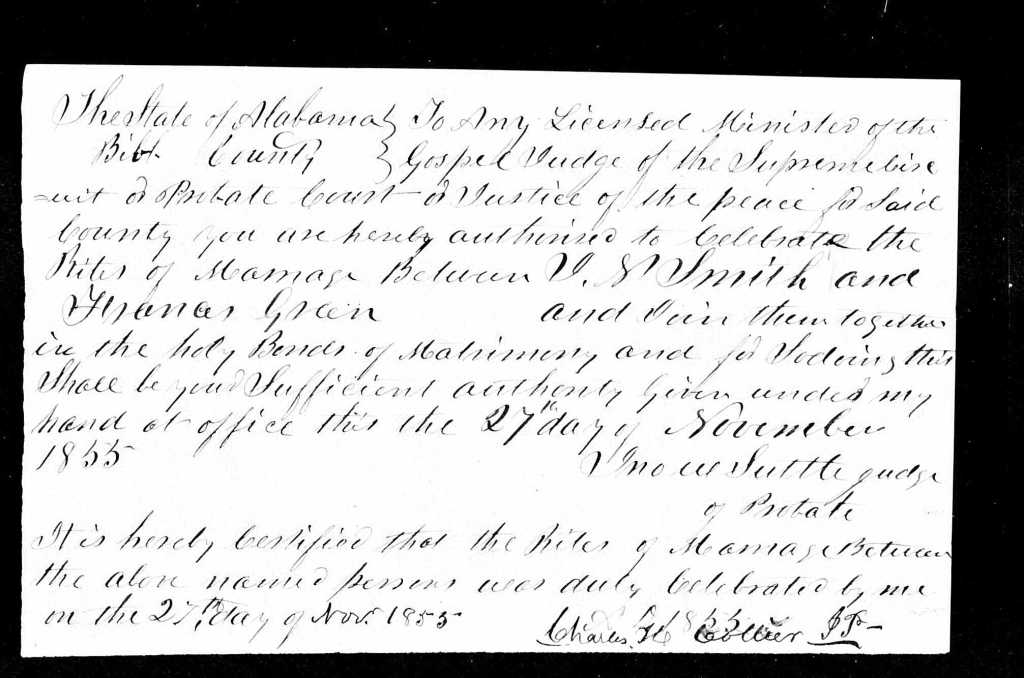 The State of Alabama } To Any Licensed Minister of the
Bibb County } Gospel Judge of the Supreme Circ
=uit or Probate Court or Justice of the peace for Said
County you are hereby authorised to Celebrate the
Rites of Marriage Between J. N Smith and
Frances Green and Join them together
in the holy Bonds of Matrimony and for So doing this
Shall be your Sufficient authority Given under my
hand at office this the 27th day of November
1855 Jno W Suttle Judge
of Probate
It is hereby Certified that the Rites of Marriage Between
the above named persons was duly Celebrated by me
on the 27th day of Nov. 1855
Charles H Collier JP